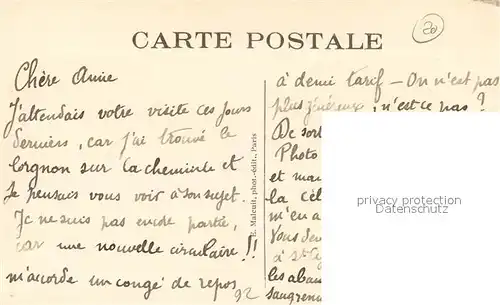 20
CARTE POSTALE
Chère Amie
J'attendais votre visite ces jours
derniers, car j'ai trouvé le
lorgnon sur la cheminée et
je pensais vous voir à son sujet.
Je ne suis pas encore partie,
car une nouvelle circulaire!!
m'accorde un congé de repos
92
E. Malcuit, phot.-édit., Paris
à demi tarif — On n'est pas
plus généreux, n'est ce pas?
De sort
Photo
et mau
la cél
m'en a
Vous dev
à St Cy
les aban
saugrenu
privacy protection
Datenschutz